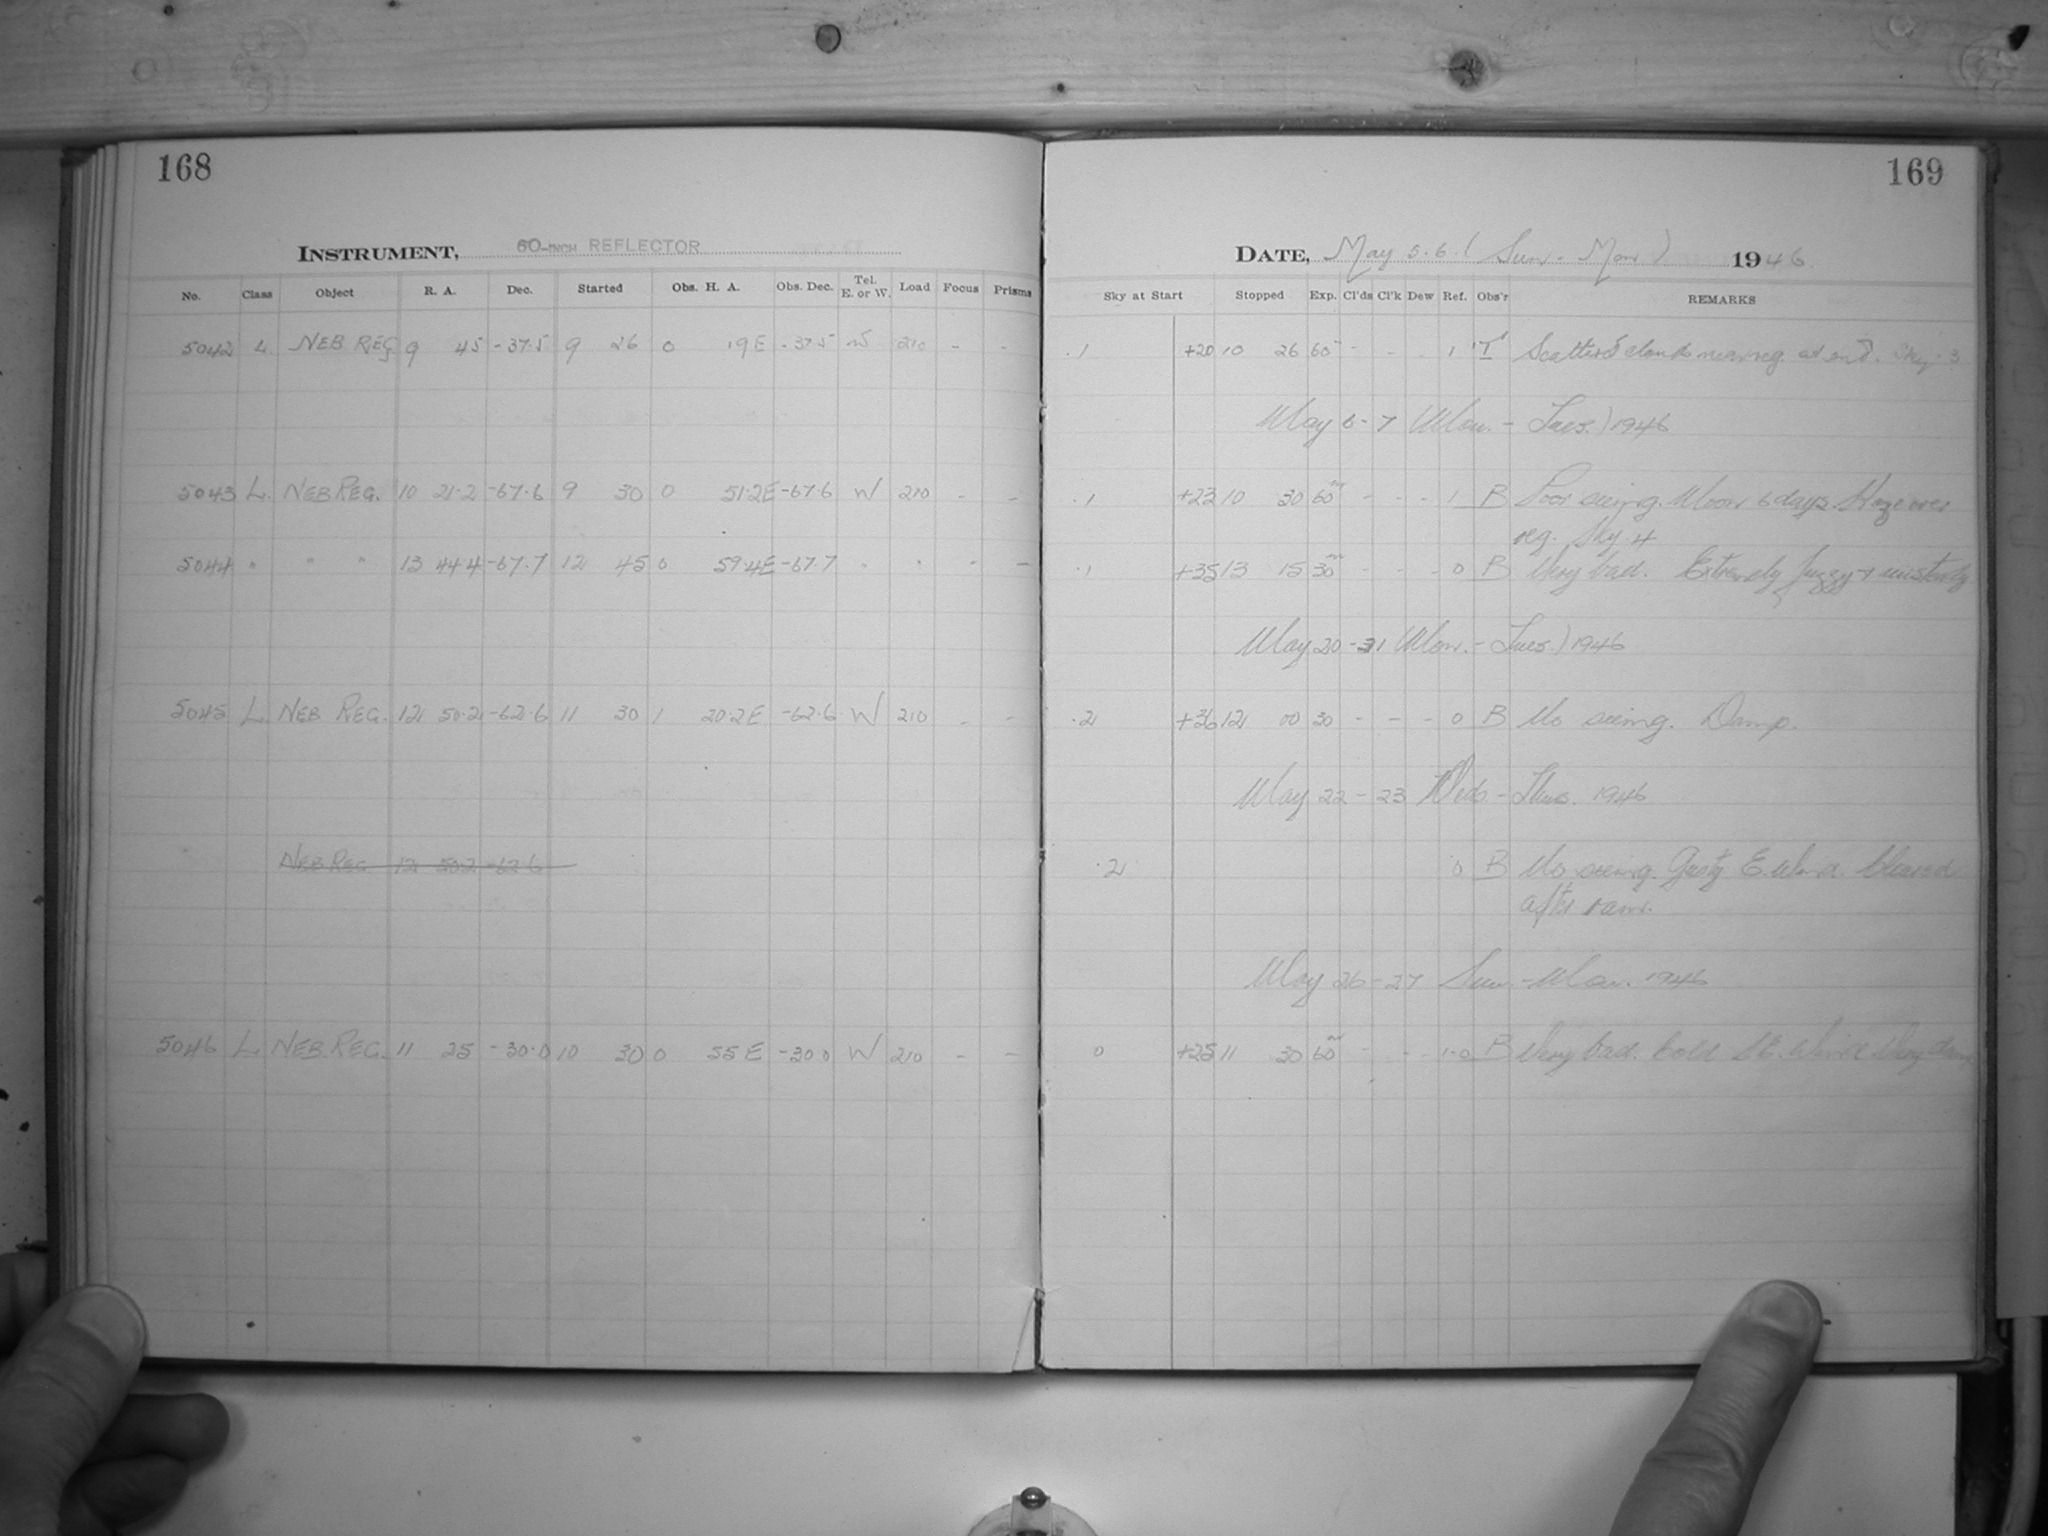 168
INSTRUMENT, 60-INCH REFLECTOR
No. Class Object R. A. Dec. Started Obs. H. A. Obs. Dec. Tel. E. or W. Load Focus Prisms
5042 L NEB REG 9 45 -37.5 9 26 0 19E -37.5 W 210 - -
5043 L. NEB REG. 10 21.2 -67.6 9 30 0 51.2E -67.6 W 210 - -
5044 " " " 13 44.4 -67.7 12 45 0 59.4E -67.7 " " - -
5045 L NEB REG. 12 50.2 -62.6 11 30 1 20.2E -62.6 W 210 - -
NEB REG 12 50.2 -62.6
5046 L NEB. REG. 11 25 -30.0 10 30 0 55 E -30.0 W 210 - -
169
DATE, May 5.6.( Sun. - Mon.) 1946
Sky at Start Stopped Exp. Cl'ds Cl'k Dew Ref. Obs'r REMARKS
.1 +20 10 26 60 - - 1 T Scatter'd clouds near reg. at end. Sky .3
May 6-7 Mon. - Tues.) 1946
.1 +23 10 30 60m - - - 1 B Poor seeing. Moon 6 days. Haze over
reg. Sky .4
.1 +35 13 15 30m - - - 0 B Very bad. Extremely fuzzy + unsteady
May 20-21 Mon. - Tues.) 1946
.2 +36 12 00 30 - - - 0 B No seeing. Damp.
May 22-23 Wed - Thurs. 1946
.2 0 B No seeing. Gusty E. Wind. Cleared
after rain.
May 26-27 Sun. - Mon. 1946
0 +25 11 30 60m - - 1-0 B Very bad. Cold SE. Wind Very damp